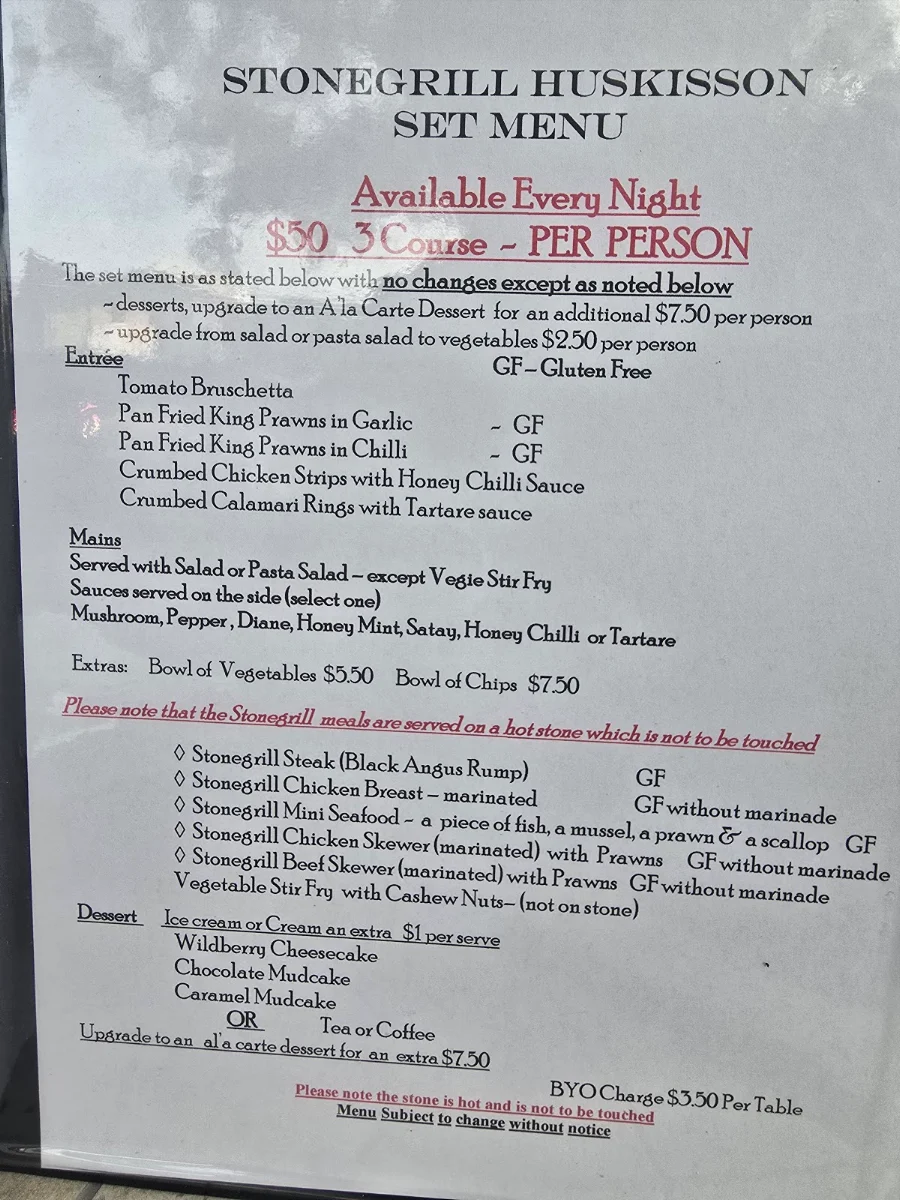 STONEGRILL HUSKISSON
SET MENU
Available Every Night
$50 3 Course ~ PER PERSON
The set menu is as stated below with no changes except as noted below
~desserts, upgrade to an A'la Carte Dessert for an additional $7.50 per person
~upgrade from salad or pasta salad to vegetables $2.50 per person
Entrée GF–Gluten Free
Tomato Bruschetta
Pan Fried King Prawns in Garlic ~ GF
Pan Fried King Prawns in Chilli ~ GF
Crumbed Chicken Strips with Honey Chilli Sauce
Crumbed Calamari Rings with Tartare sauce
Mains
Served with Salad or Pasta Salad – except Vegie Stir Fry
Sauces served on the side (select one)
Mushroom, Pepper , Diane, Honey Mint, Satay, Honey Chilli or Tartare
Extras: Bowl of Vegetables $5.50 Bowl of Chips $7.50
Please note that the Stonegrill meals are served on a hot stone which is not to be touched
◊ Stonegrill Steak (Black Angus Rump) GF
◊ Stonegrill Chicken Breast – marinated GF without marinade
◊ Stonegrill Mini Seafood ~ a piece of fish, a mussel, a prawn & a scallop GF
◊ Stonegrill Chicken Skewer (marinated) with Prawns GF without marinade
◊ Stonegrill Beef Skewer (marinated) with Prawns GF without marinade
Vegetable Stir Fry with Cashew Nuts– (not on stone)
Dessert Ice cream or Cream an extra $1 per serve
Wildberry Cheesecake
Chocolate Mudcake
Caramel Mudcake
OR Tea or Coffee
Upgrade to an al'a carte dessert for an extra $7.50
BYO Charge $3.50 Per Table
Please note the stone is hot and is not to be touched
Menu Subject to change without notice